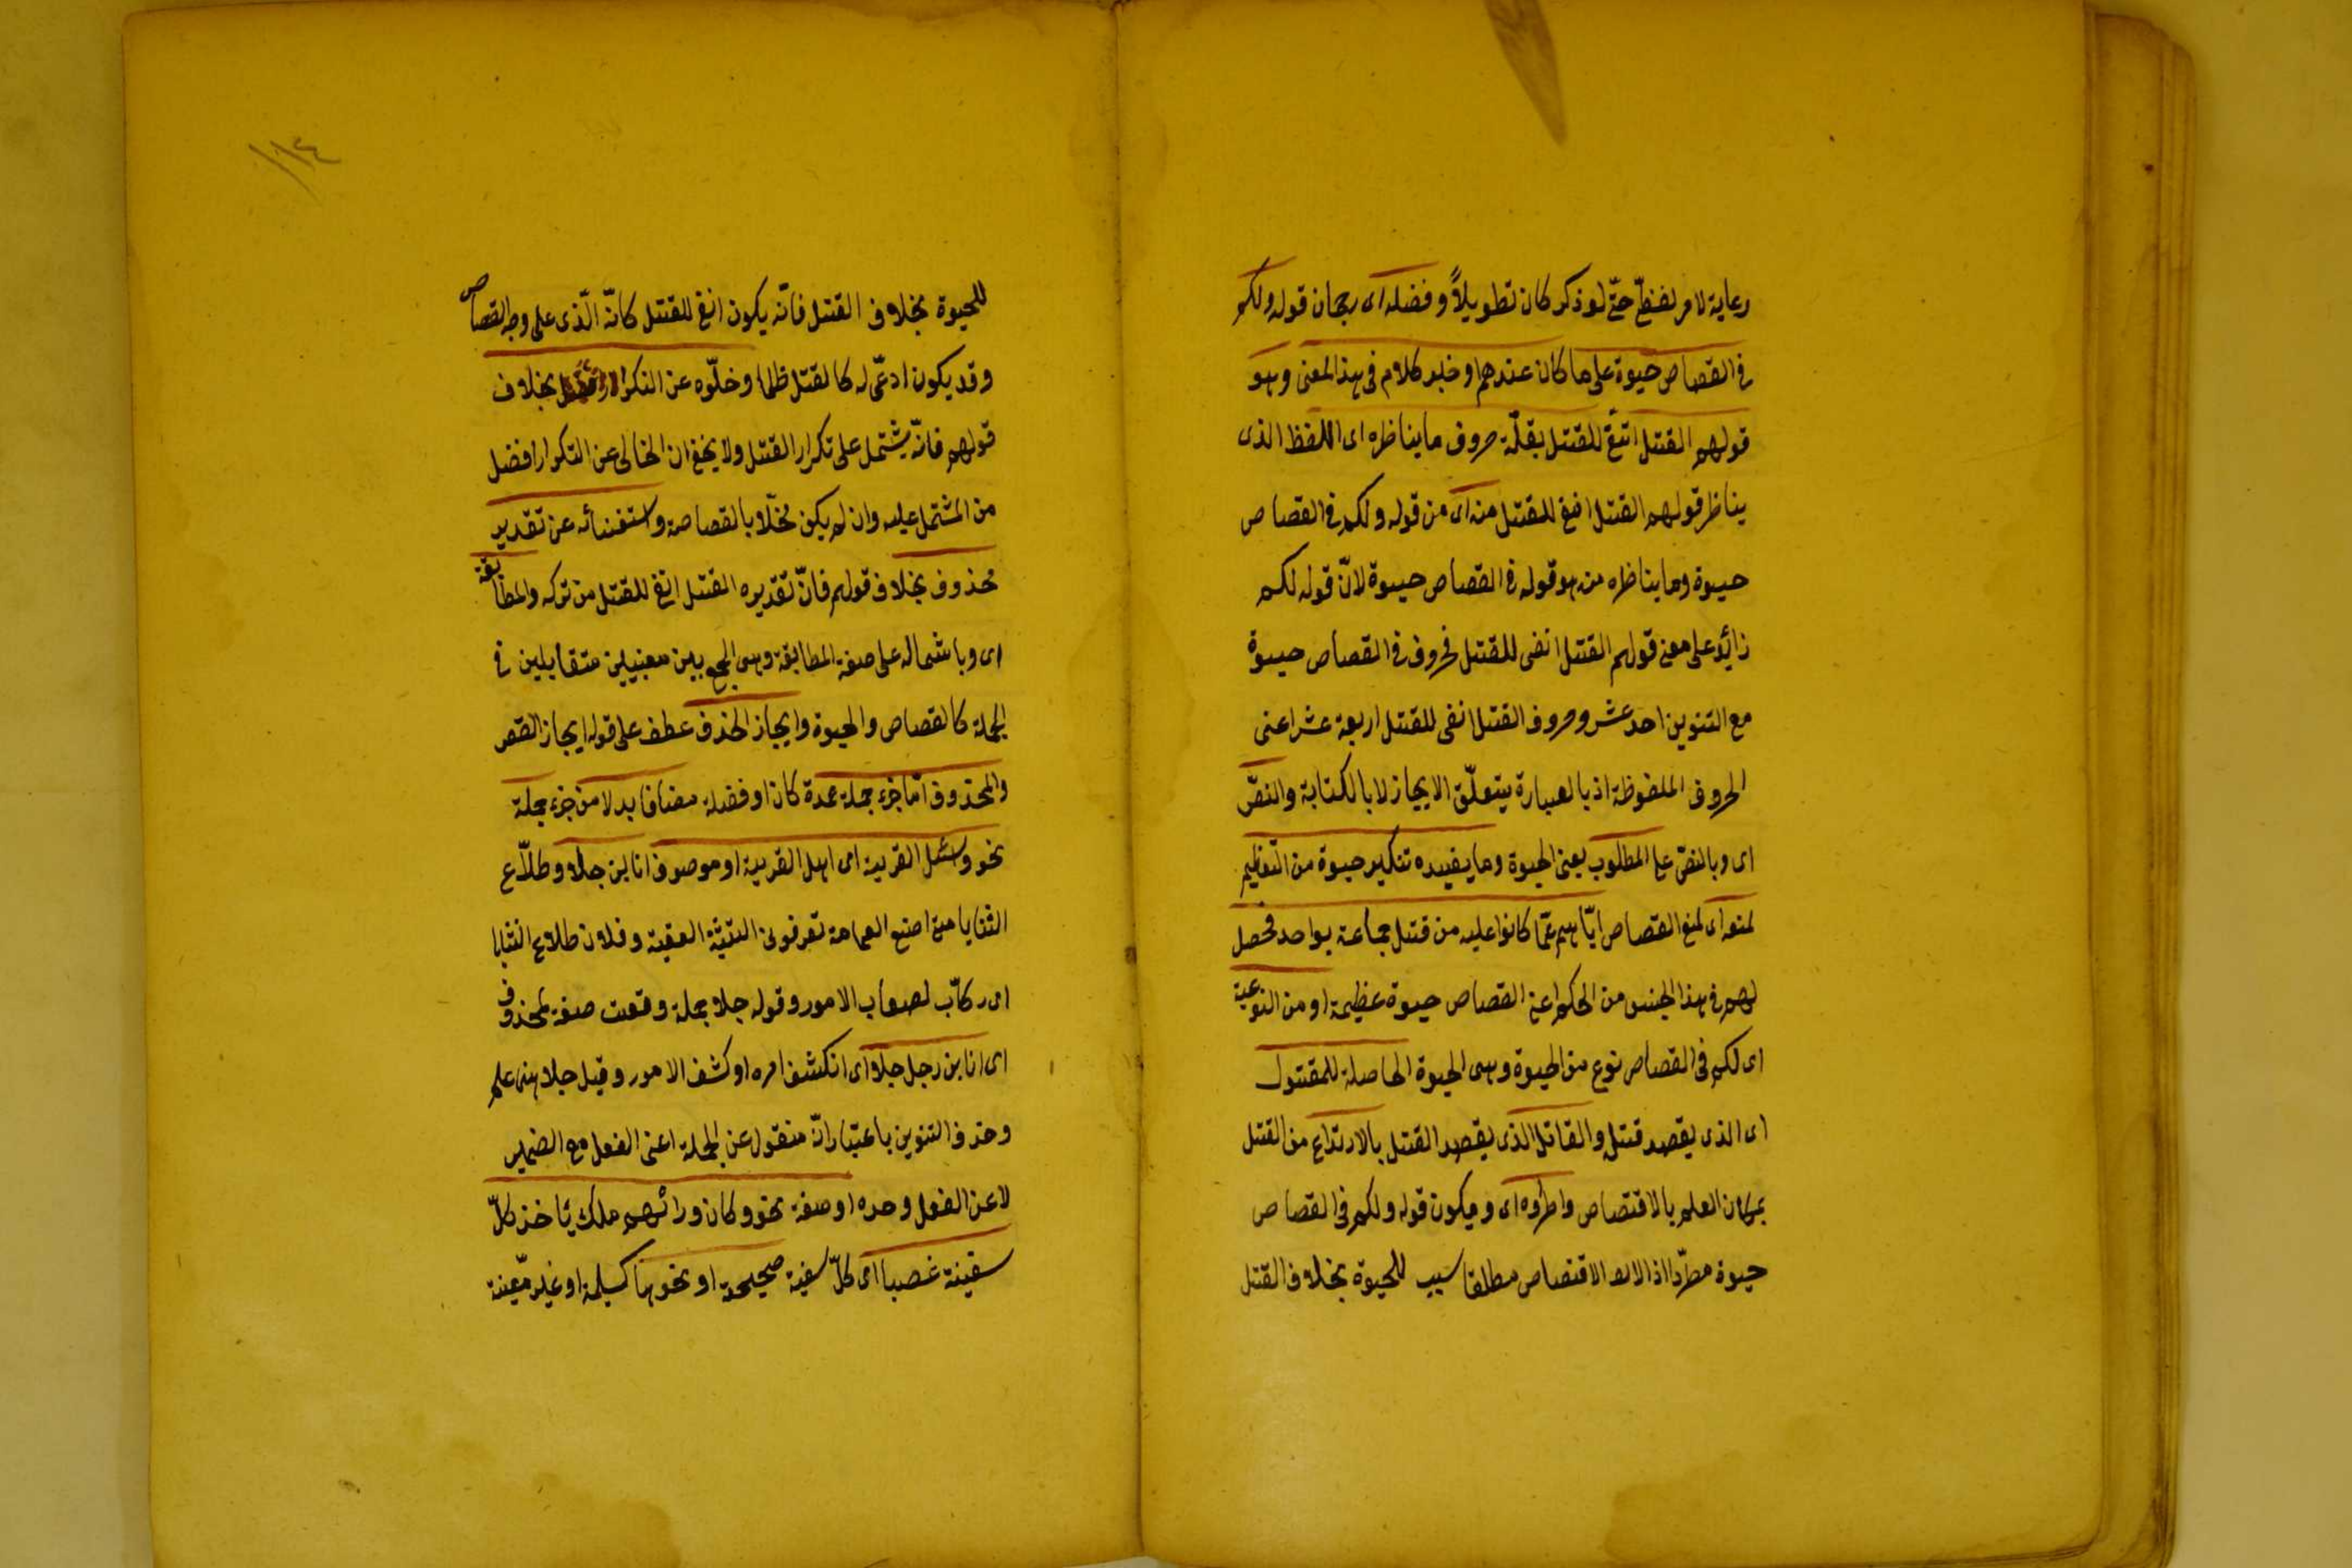 رعاية لامر لفظيّ حتّى لو ذكر كان تطويلاً وفضله اى رجحان قوله ولكم
فى القصاص حيوة على ما كان عندهم اوخبر كلام فى هذا المعنى وهو
قولهم القتل انفى للقتل بقلّة حروف ما يناظره اى اللفظ الذى
يناظر قولهم القتل انفى للقتل منه اى من قوله ولكم فى القصاص
حيوة وما يناظره منه هو قوله فى القصاص حيوة لانّ قوله لكم
زائد على معنى قولهم القتل انفى للقتل فحروف فى القصاص حيوة
مع التنوين احد عشر وحروف القتل انفى للقتل اربعة عشر اعنى
الحروف الملفوظة اذ بالعبارة يتعلّق الايجاز لا بالكتابة والنصّ
اى وبالنصّ على المطلوب يعنى الحيوة وما يفيده تنكير حيوة من التعظيم
لمنعه اى لمنع القصاص ايّاهم عمّا كانوا عليه من قتل جماعة بواحد فحصل
لهم فى هذا الجنس من الحكم اعنى القصاص حيوة عظيمة او من النوعية
اى لكم فى القصاص نوع من الحيوة وهى الحيوة الحاصلة للمقتول
اى الذى يقصد قتله والقاتل الذى يقصد القتل بالارتداع من القتل
بمكان العلم بالاقتصاص واطراده اى ويكون قوله ولكم فى القصاص
حيوة مطرّدا اذ الاقتصاص مطلقا سبب للحيوة بخلاف القتل
١١٤
للحيوة بخلاف القتل فانّه يكون انفى للقتل كانّه الّذى على وجه القصاص
وقد يكون ادعى له كالقتل ظلما وخلّوه عن التكرار بخلاف
قولهم فانّه يشتمل على تكرار القتل ولا يخفى ان الخالى عن التكرار افضل
من المشتمل عليه وان لم يكن مخلّا بالفصاحة واستغنائه عن تقدير
محذوف بخلاف قولهم فانّ تقديره القتل انفى للقتل من تركه والمطابقة
اى وباشماله على صفة المطابقة وهى الجمع بين معنيين متقابلين فى
الجملة كالقصاص والحيوة وايجاز الحذف عطف على قوله ايجاز القصر
والمحذوف امّا جزء جملة عمدة كان او فضلة مضاف بدلا من جزء جملة
نحو واسئل القرية اى اهل القرية او موصوف انا ابن جلا وطلاّع
الثنايا متى اضع العمامة تعرفونى الثنيّة العقبة وفلان طلاع الثنايا
اى ركّاب لصعاب الامور وقوله جلا جملة وقعت صفة لمحذوف
اى انا ابن رجل جلا اى انكشف امره او كشف الامور وقيل جلا هنا علم
وحذف التنوين باعتبار انّه منقول عن الجملة اعنى الفعل مع الضمير
لا عن الفعل وحده او صفة نحو وكان ورائهم ملك يأخذ كلّ
سفينة غصبا اى كلّ سفينة صحيحة او نحوها كسليمة او غير معيّنة